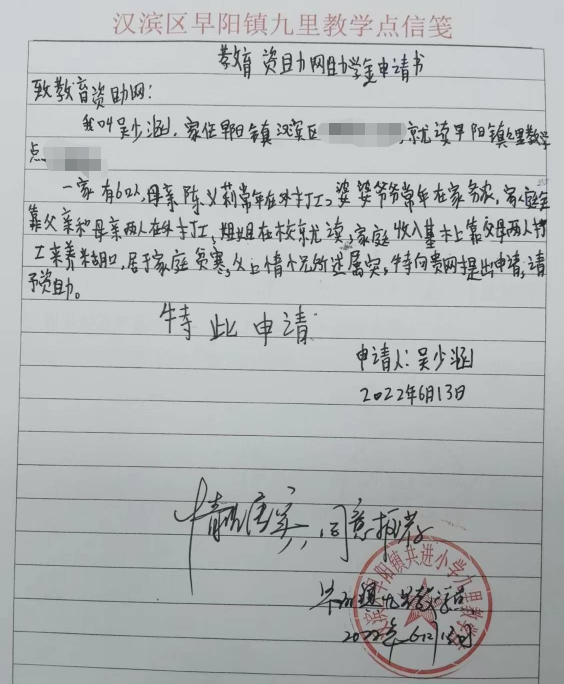 汉滨区早阳镇九里教学点信笺
教育资助网助学金申请书
致教育资助网:
我叫吴少涵,家住早阳镇汉滨区,就读早阳镇九里教学
点
一家有6口人,母亲陈义莉常年在外打工。婆婆爷爷常年在家务农,家庭全
靠父亲和母亲两人在外打工,姐姐在校就读,家庭收入基本上靠父母两人打
工来养糊口,居于家庭贫寒,以上情况所述属实,特向贵网提出申请,请
予资助。
特此申请
申请人:吴少涵
2022年6月13日
情况属实,同意推荐
早阳镇九里教学点
2022年6月13日
滨区早阳镇共进小学九里教学